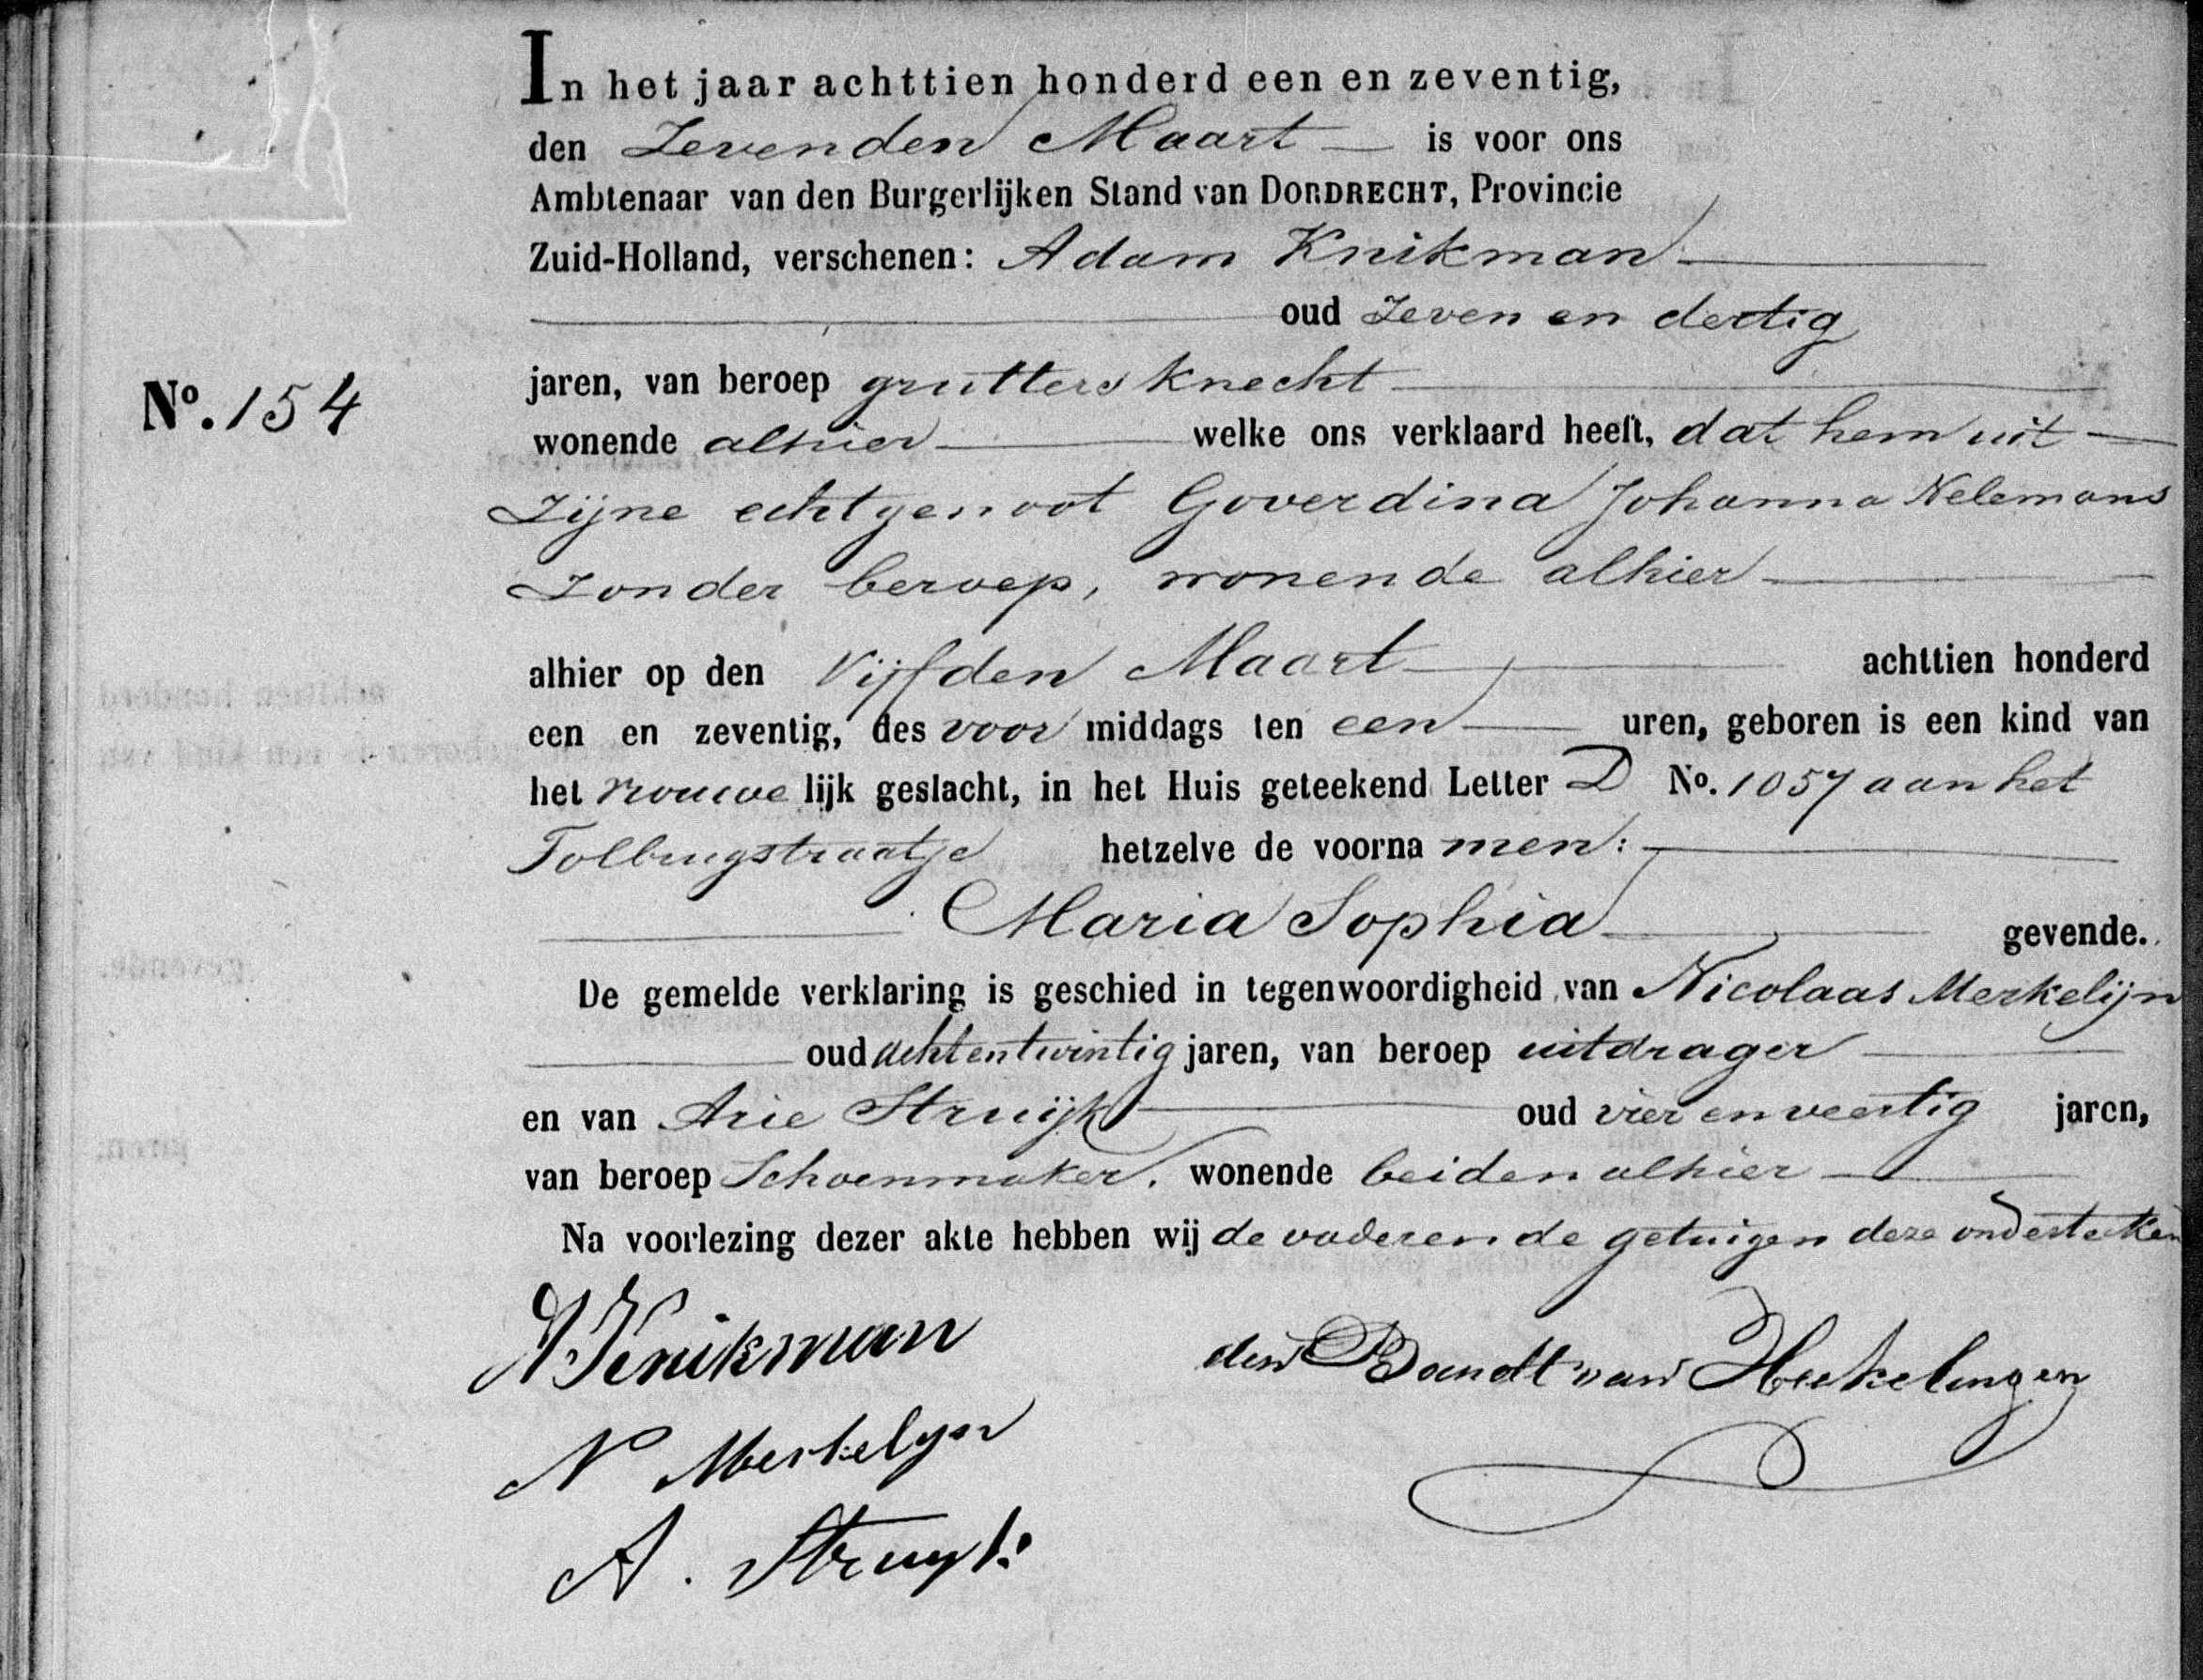 In het jaar achttien honderd een en zeventig,
den Zevenden Maart is voor ons
Ambtenaar van den Burgerlijken Stand van DORDRECHT, Provincie
Zuid-Holland, verschenen: Adam Knikman
oud Zeven en dertig
No. 154
jaren, van beroep grutters knecht
wonende alhier welke ons verklaard heeft, dat hem uit
Zijne echtgenoot Goverdina Johanna Nelemans
Zonder beroep, wonende alhier
alhier op den Vijfden Maart achttien honderd
een en zeventig, des voor middags ten een uren, geboren is een kind van
het vrouwe lijk geslacht, in het Huis geteekend Letter D No. 1057 aan het
Tolbrugstraatje hetzelve de voorna men:
Maria Sophia gevende.
De gemelde verklaring is geschied in tegenwoordigheid van Nicolaas Merkelijn
oud achtentwintig jaren, van beroep uitdrager
en van Arie Struijk oud vier en veertig jaren,
van beroep Schoenmaker. wonende beiden alhier
Na voorlezing dezer akte hebben wij de vader en de getuigen deze onderteeken
A Knikman
den Bandt van Heekelingen
N Merkelyn
A. Struyk